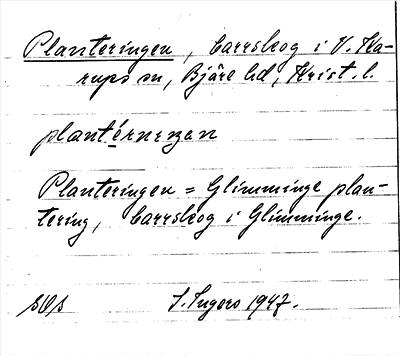 Planteringen, barrskog i V. Ka-
rups sn, Bjäre hd, Krist. l.
plantérnɪŋen
Planteringen = Glimminge plan-
tering, barrskog i Glimminge.
S. Ingers 1947.